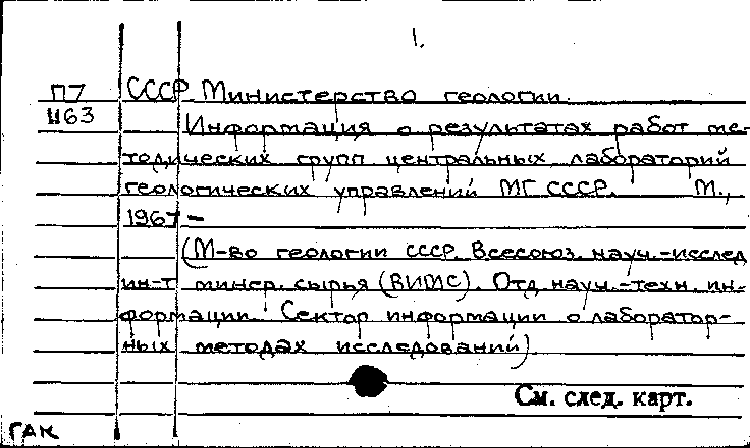 1.
П7 СССР. Министерство геологии.
И63 Информация о результатах работ ме-
тодических групп центральных лабораторий
геологических управлений МГ СССР. М.,
1967 -
(М-во геологии СССР. Всесоюз. науч.-исслед.
ин-т минер. сырья (ВИМС). Отд. науч.-техн. ин-
формации. Сектор информации о лаборатор-
ных методах исследований)
См. след. карт.
ГАК